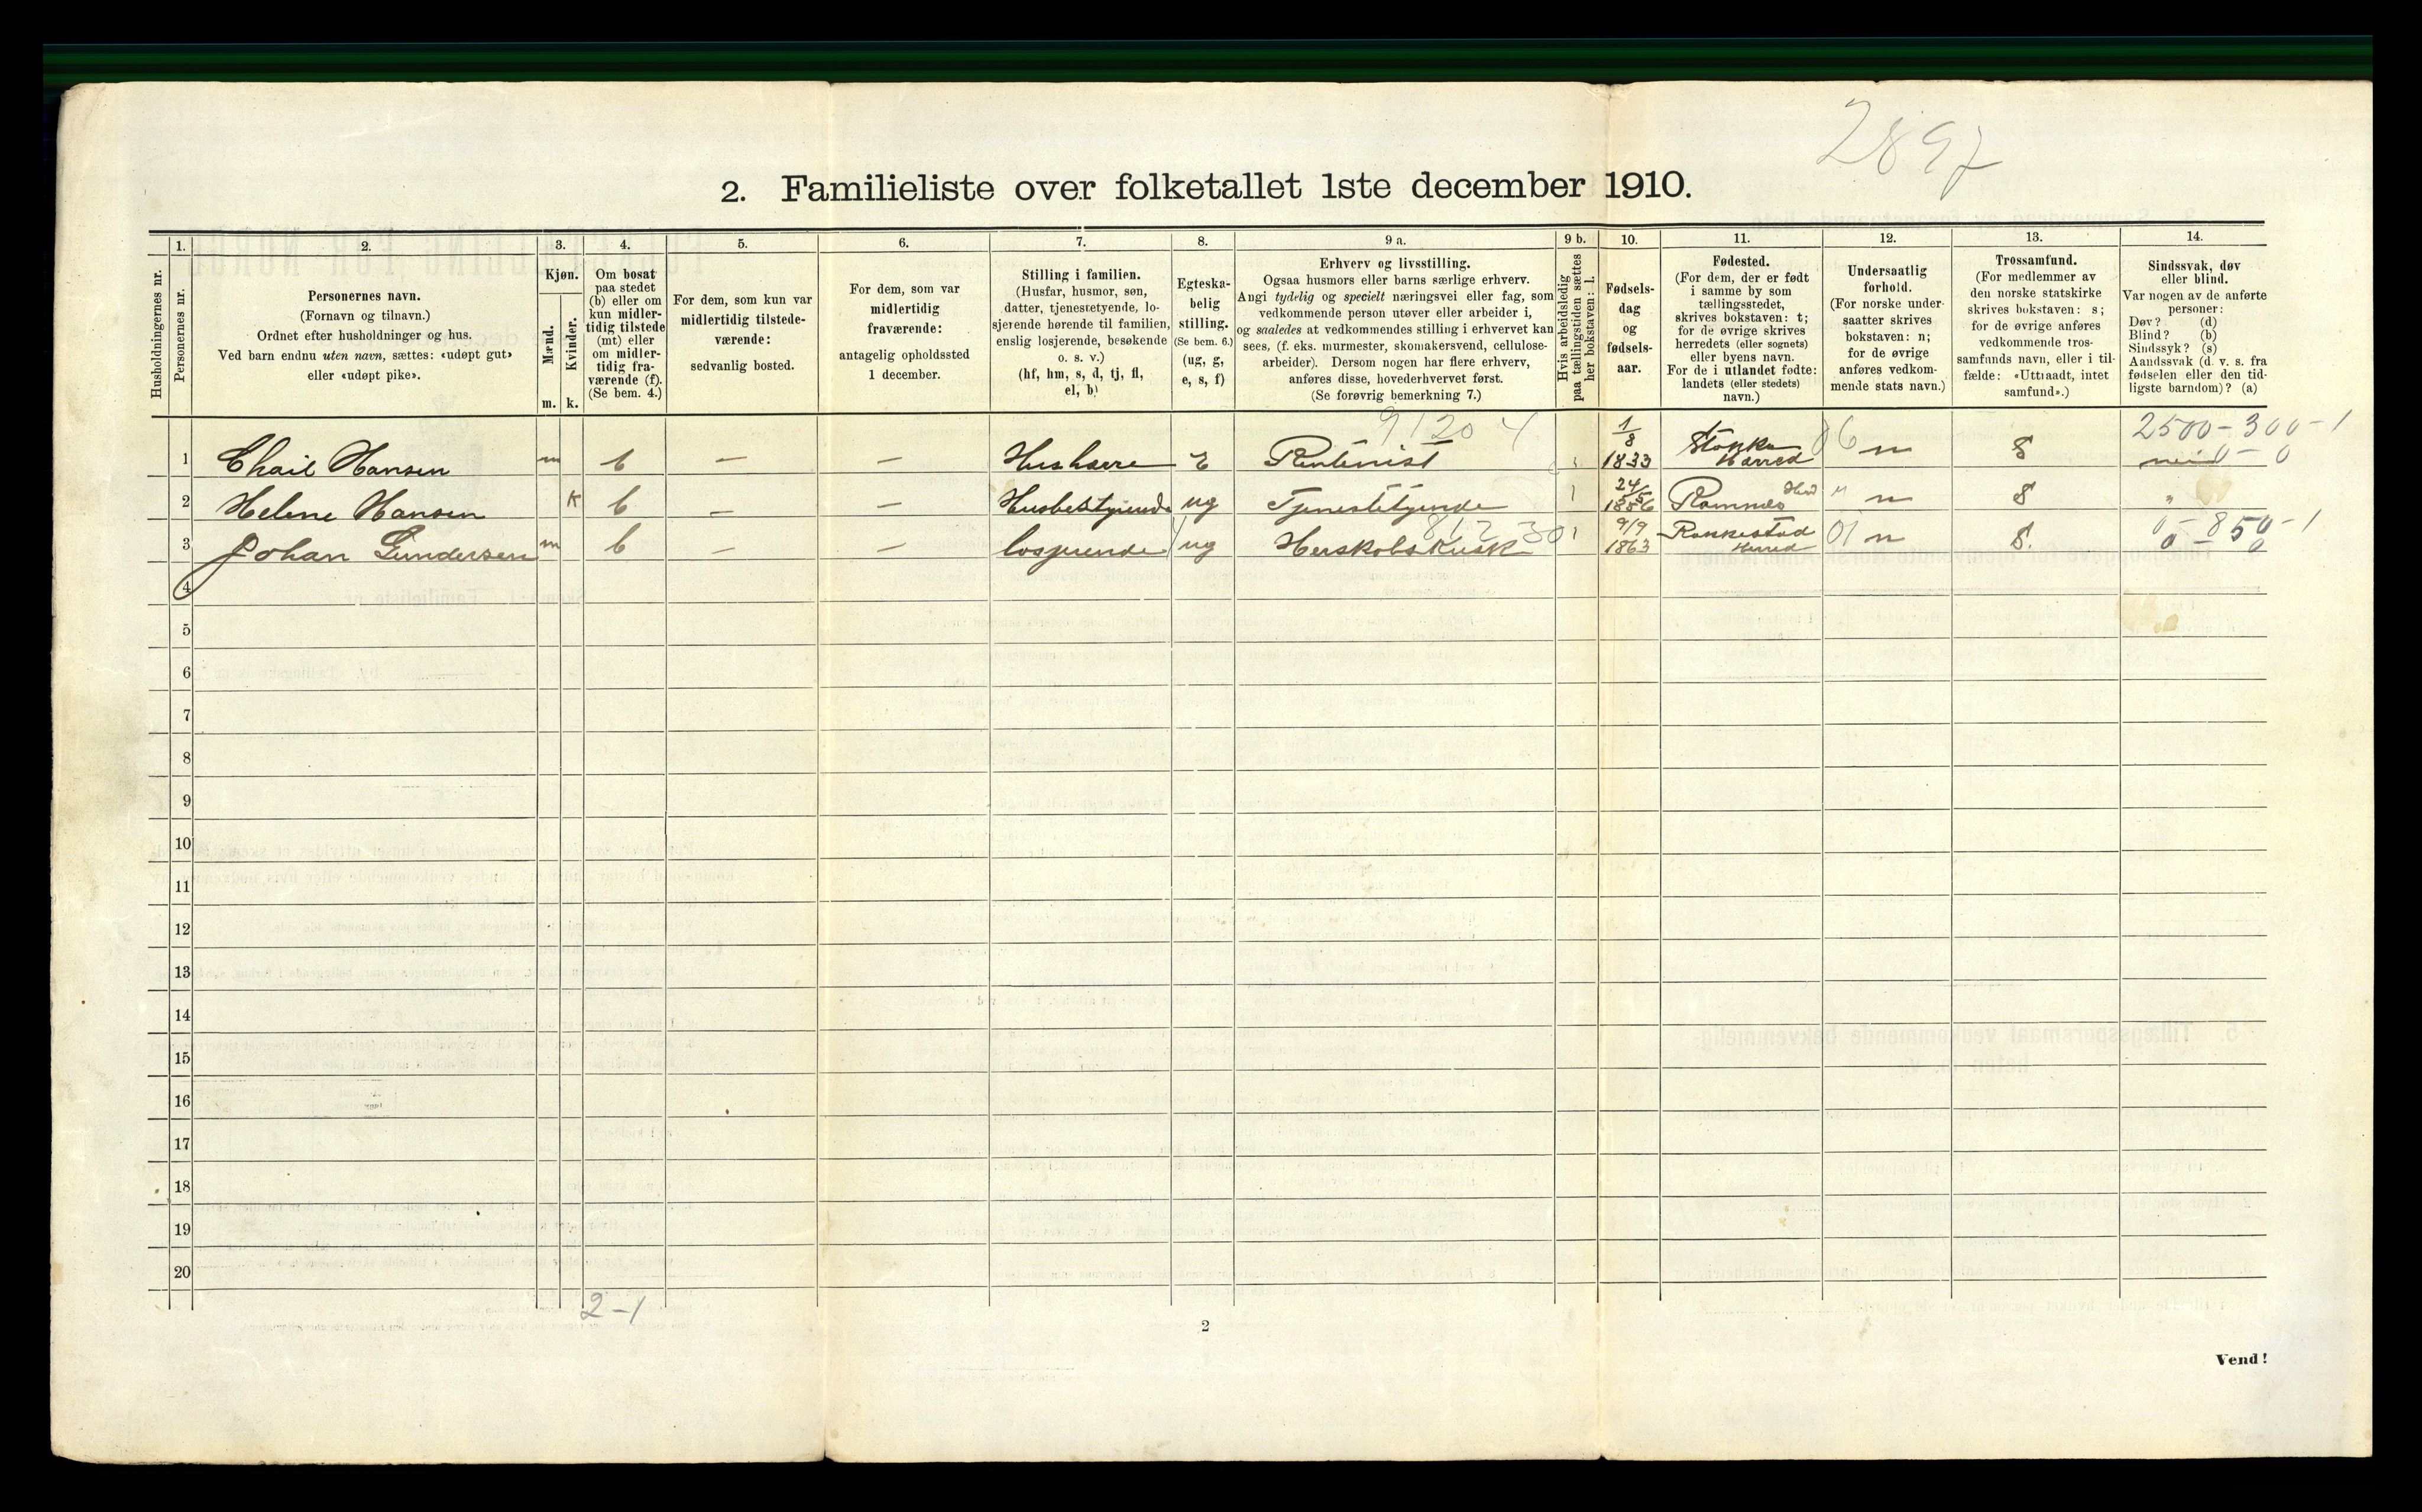 2897
2. Familieliste over folketallet 1ste december 1910.
Husholdningernes nr.
1.
Personernes nr.
2.
Personernes navn.
(Fornavn og tilnavn.)
Ordnet efter husholdninger og hus.
Ved barn endnu uten navn, sættes: «udøpt gut»
eller «udøpt pike».
3.
Kjøn.
Mænd.
m.
Kvinder.
k.
4.
Om bosat
paa stedet
(b) eller om
kun midler-
tidig tilstede
(mt) eller
om midler-
tidig fra-
værende (f).
(Se bem. 4.)
5.
For dem, som kun var
midlertidig tilstede-
værende:
sedvanlig bosted.
6.
For dem, som var
midlertidig
fraværende:
antagelig opholdssted
1 december.
7.
Stilling i familien.
(Husfar, husmor, søn,
datter, tjenestetyende, lo-
sjerende hørende til familien,
enslig losjerende, besøkende
o. s. v.)
(hf, hm, s, d, tj, fl,
el, b)
8.
Egteska-
belig
stilling.
(Se bem. 6.)
(ug, g,
e, s, f)
9 a.
Erhverv og livsstilling.
Ogsaa husmors eller barns særlige erhverv.
Angi tydelig og specielt næringsvei eller fag, som
vedkommende person utøver eller arbeider i,
og saaledes at vedkommendes stilling i erhvervet kan
sees, (f. eks. murmester, skomakersvend, cellulose-
arbeider). Dersom nogen har flere erhverv,
anføres disse, hovederhvervet først.
(Se forøvrig bemerkning 7.)
9 b.
Hvis arbeidsledig
paa tællingstiden sættes
her bokstaven: l.
10.
Fødsels-
dag
og
fødsels-
aar.
11.
Fødested.
(For dem, der er født
i samme by som
tællingsstedet,
skrives bokstaven: t;
for de øvrige skrives
herredets (eller sognets)
eller byens navn.
For de i utlandet fødte:
landets (eller stedets)
navn.)
12.
Undersaatlig
forhold.
(For norske under-
saatter skrives
bokstaven: n;
for de øvrige
anføres vedkom-
mende stats navn.)
13.
Trossamfund.
(For medlemmer av
den norske statskirke
skrives bokstaven: s;
for de øvrige anføres
vedkommende tros-
samfunds navn, eller i til-
fælde: «Uttraadt, intet
samfund».)
14.
Sindssvak, døv
eller blind.
Var nogen av de anførte
personer:
Døv? (d)
Blind? (b)
Sindssyk? (s)
Aandssvak (d. v. s. fra
fødselen eller den tid-
ligste barndom)? (a)
9120 4 2500-300-1
1 Chail Hansen m b — — Husherre E Rentenist 1/8 1833 Stokke Herred 06 n S nei 0-0
2 Helene Hansen K b — — Husbestyrende ug Tjenestetyende 1 24/5 1856 Ramnes Herd " n S "
812 30 0-850-1
3 Johan Gundersen m b — — losjerende ug Herskobskusk 1 9/9 1863 Rakkestad Herred 01 n S. 0-0
4
5
6
7
8
9
10
11
12
13
14
15
16
17
18
19
20
2-1
2
Vend!